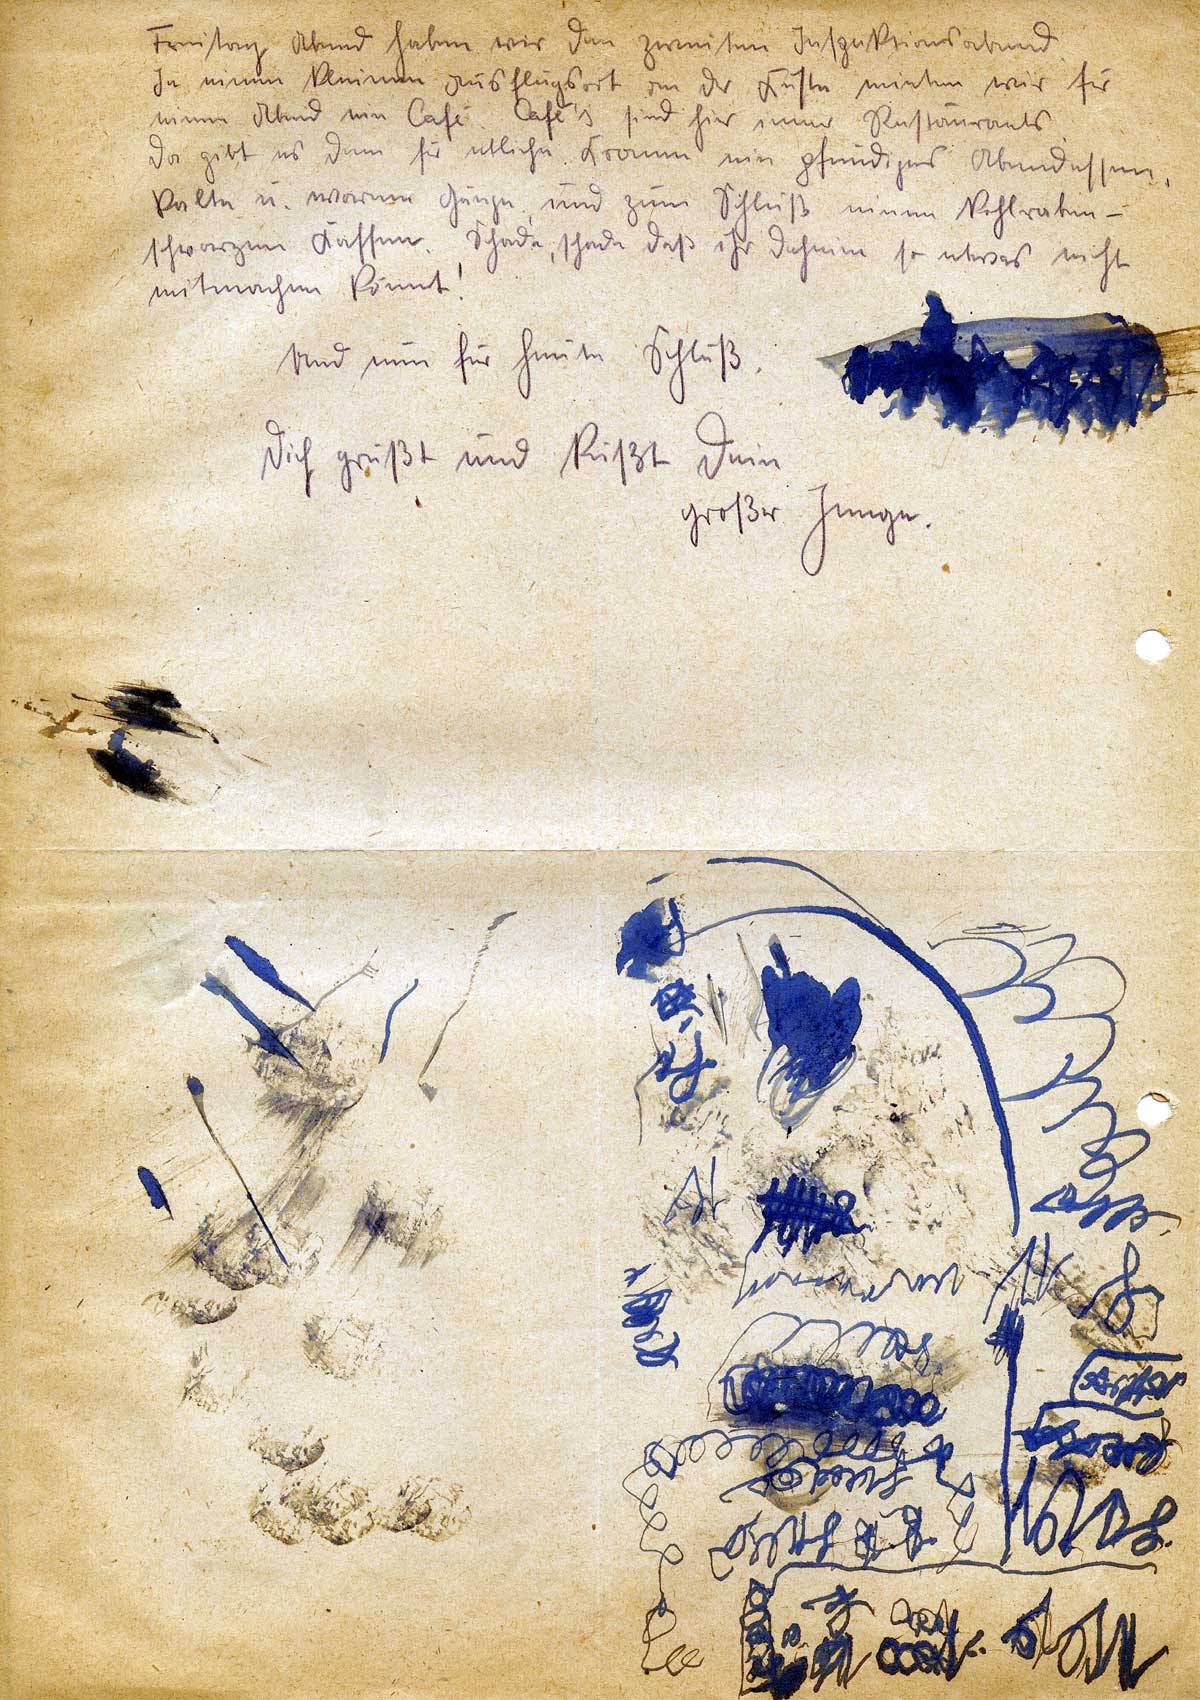 Freitag Abend haben wir den zweiten Inspektionsabend
In einem kleinen Ausflugsort an der Küste mieten wir für
einen Abend ein Café. Café's sind hier immer Restaurants
Da gibt es dann für etliche Kronen ein pfundiges Abendessen,
kalte u. warme Gänge, und zum Schluß einen kohlraben-
schwarzen Kaffee. Schade, schade daß ihr daheim so etwas nicht
mitmachen könnt!
Und nun für heute Schluß.
Dich grüßt und küßt Dein
großer Junge.